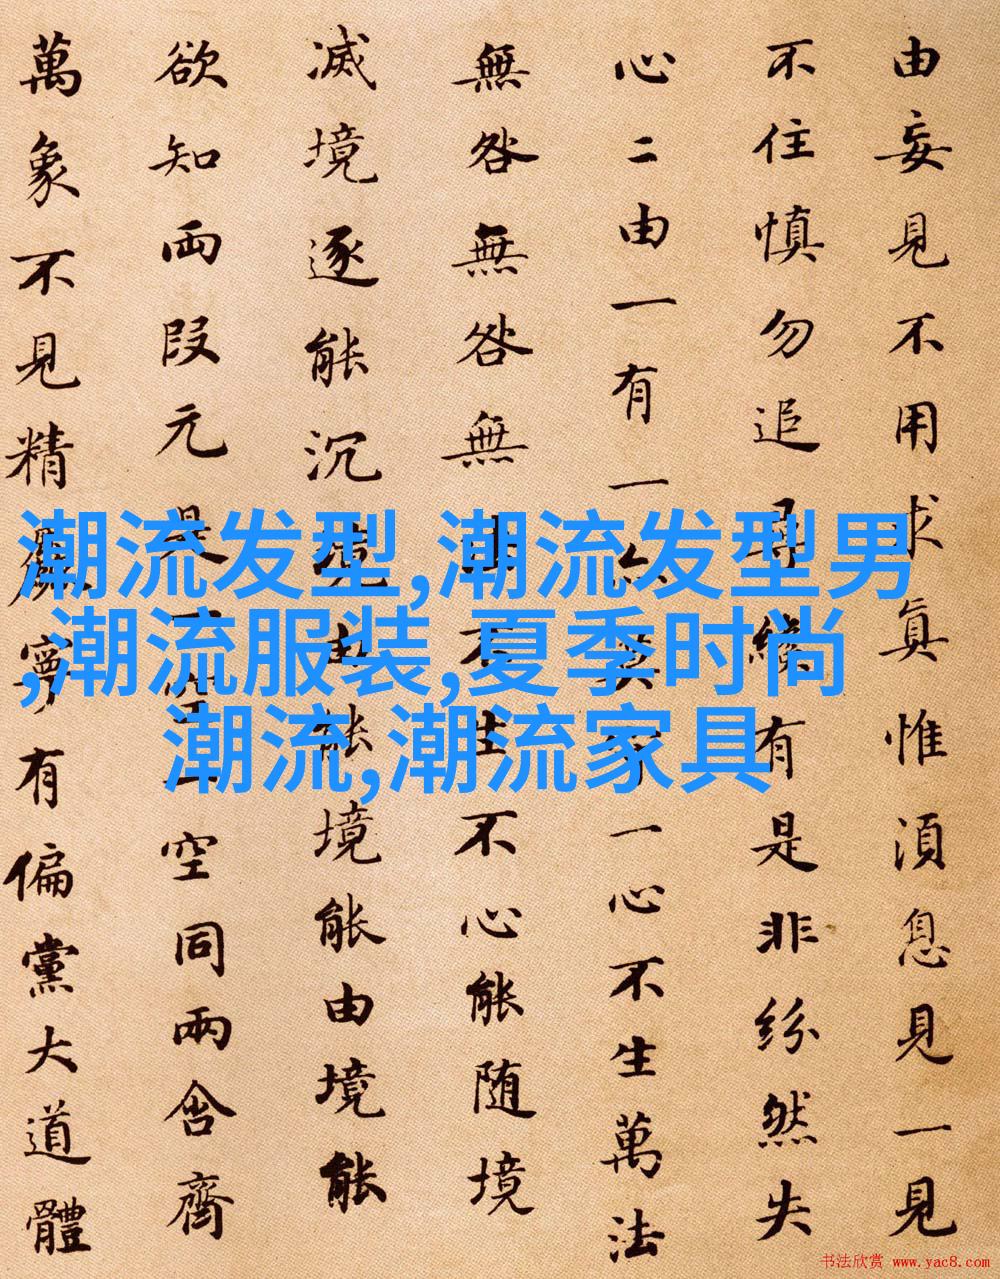 由妄見不用求真惟湏息見一見
不住慎勿追尋纔有是非紛然失
心二由一有一亦莫守一心不生萬法
無咎無咎無法不生不心能随境
滅境逐能沉境由能境能由境能
欲知両段元是一空一空同兩含齊
萬象不見精麁寧有偏黨大道體
潮流发型,潮流发型男
,潮流服装,夏季时尚
潮流,潮流家具
书法欣赏 www.yac8.com